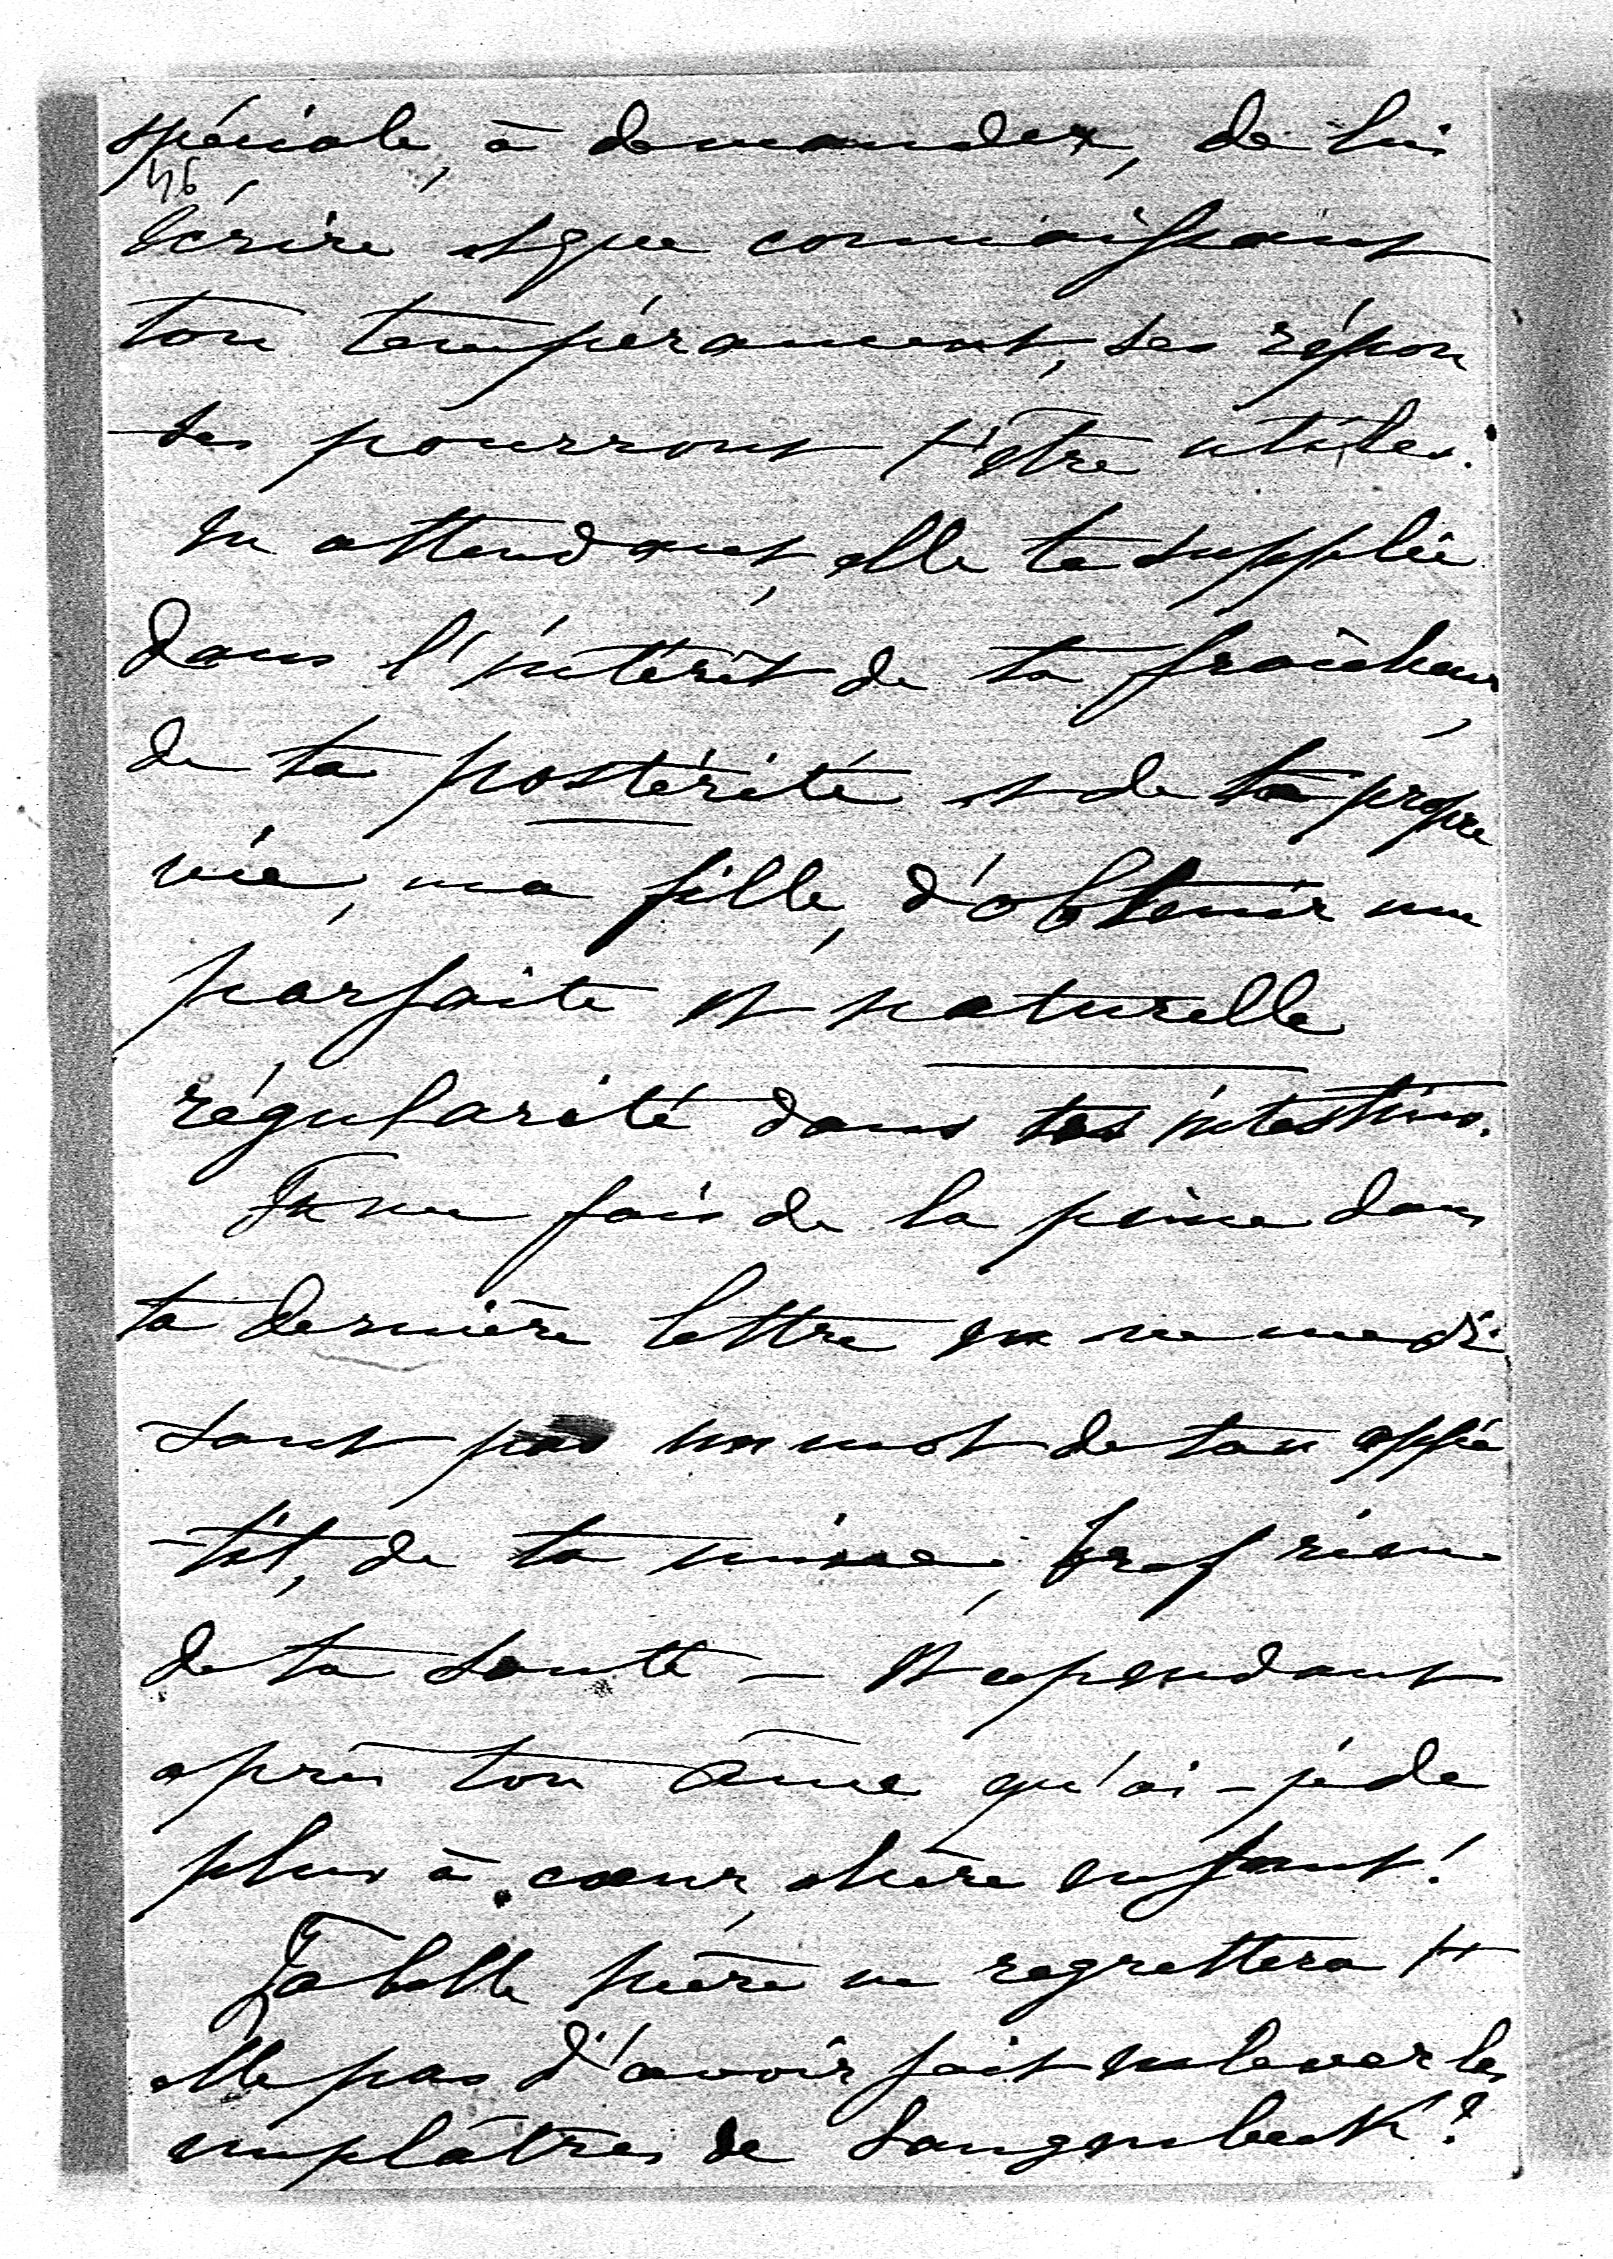 spéciale, à demander, de lui
46
écrire et que connaissant
ton tempérament, ses répon
-ses pourront t'être utiles.
En attendant, elle te supplie
dans l'intérêt de ta fraîcheur,
de ta postérité et de ta propre
vie, ma fille, d'obtenir une
parfaite et naturelle
régularité dans tes intestins.
Tu me fais de la peine dans
ta dernière lettre en ne me di
sant pas un mot de ton appé
-tit, de ta mine, bref rien
de ta santé – et cependant
après ton âme qu'ai-je de
plus à coeur, chère enfant!
Ta belle mère ne regrettera t-
elle pas d'avoir fait enlever les
emplâtres de Langenbeck?